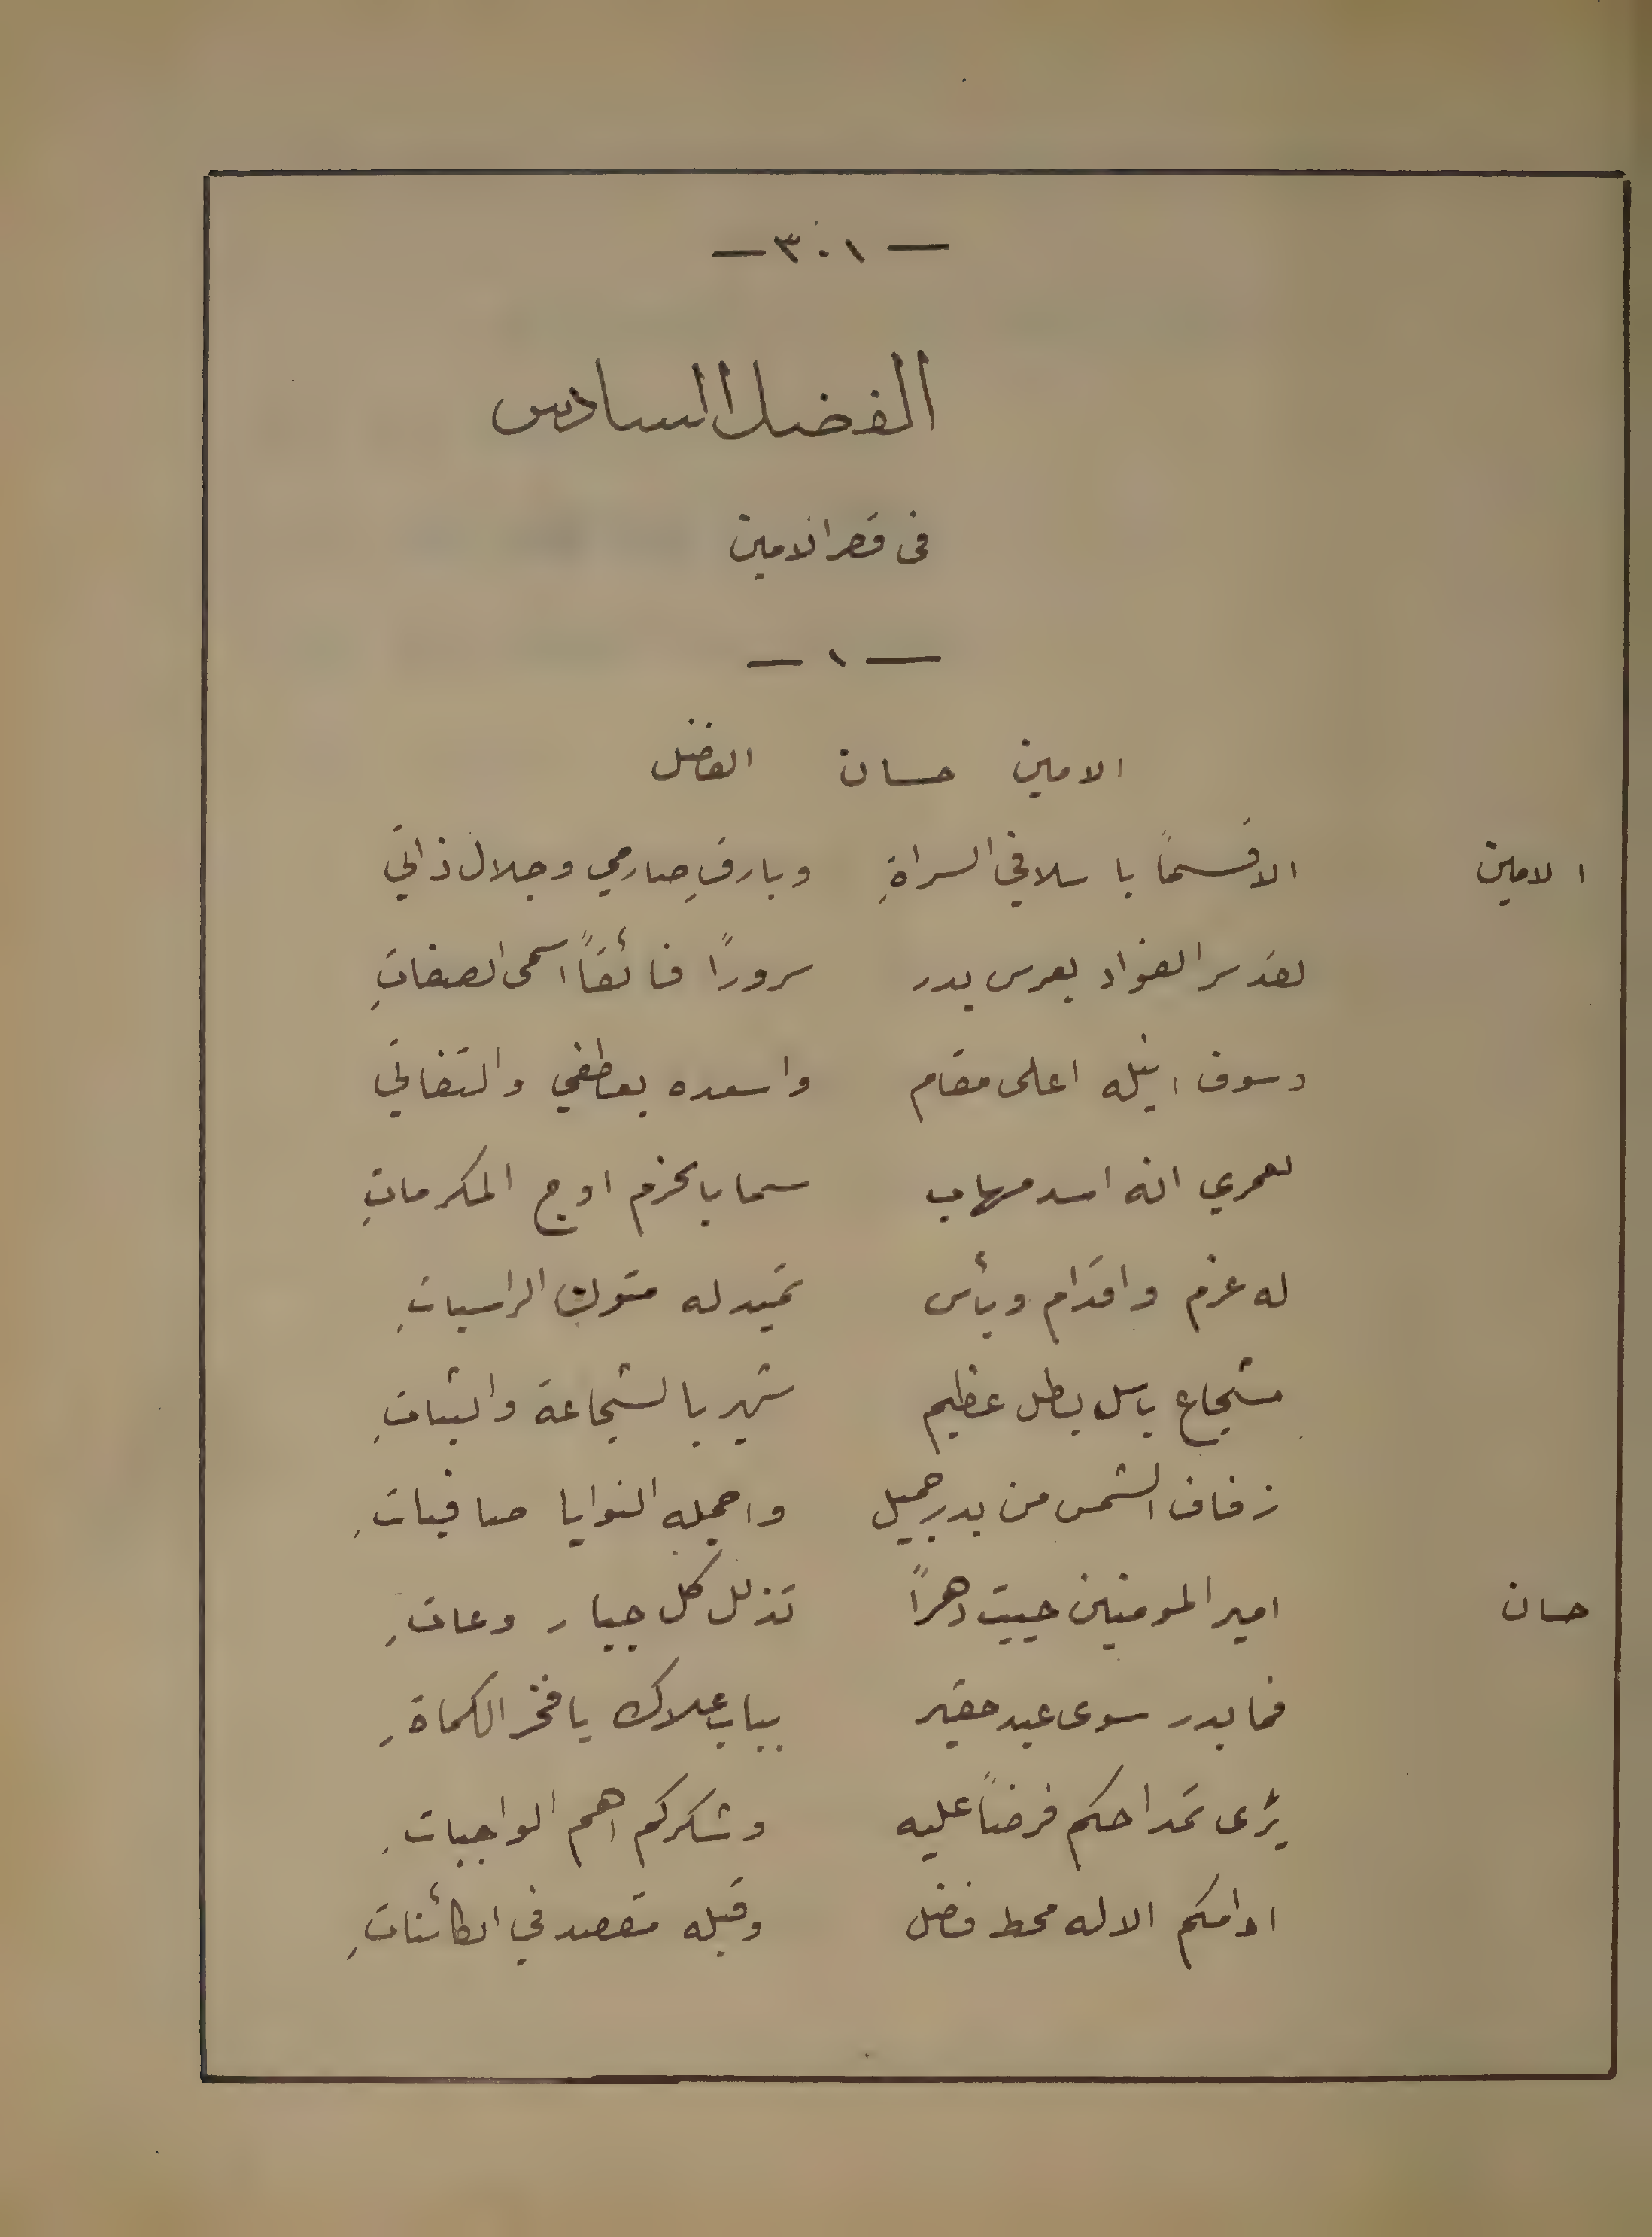 — ٣٠١ —
الفضل السادس
في قصر الامين
— ١ —
الامين حسان الفضل
الامين الا قسمًا باسلافي السراةِ وبارقِ صارمي وجلال ذاتي
لقد سر الفؤاد بعرس بدر سرورًا فائقًا اسمى الصفاتِ
وسوف انيله اعلى مقام واسعده بعطفي والتفاتي
لعمري انه اسد مهاب سما بالحزم اوج المكرماتِ
له عزم واقدام وبأس تميد له متون الراسياتِ
شجاع باسل بطل عظيم شهير بالشجاعة والثباتِ
زفاف الشمس من بدر جميل واجمله النوايا صافياتِ
حسان امير المومنين حييت دهرًا تذلل كل جبار وعاتِ
فما بدر سوى عبد حقير بباب علاك يا فخر الكماةِ
يرى تمداحكم فرضًا عليه وشكركم اهم الواجباتِ
ادامكم الاله محط فضل وقبله مقصد في الكائناتِ